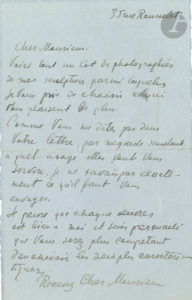 33 rue Ranelagh
Cher Monsieur.
Voici tout un lot de photographies
de mes sculptures parmi lesquelles
je vous prie de choisir celles qui
vous plaisent le plus.
Comme vous me dites pas dans
votre lettre,
a quel usage elles vont vous
servir, je ne savais pas exacte-
ment ce qu'il faut vous
envoyer.
Je pense que chaque
est bien a moi et suis persuadé
que vous serez plus compétent
d'en choisir les
Recevez Cher Monsieur